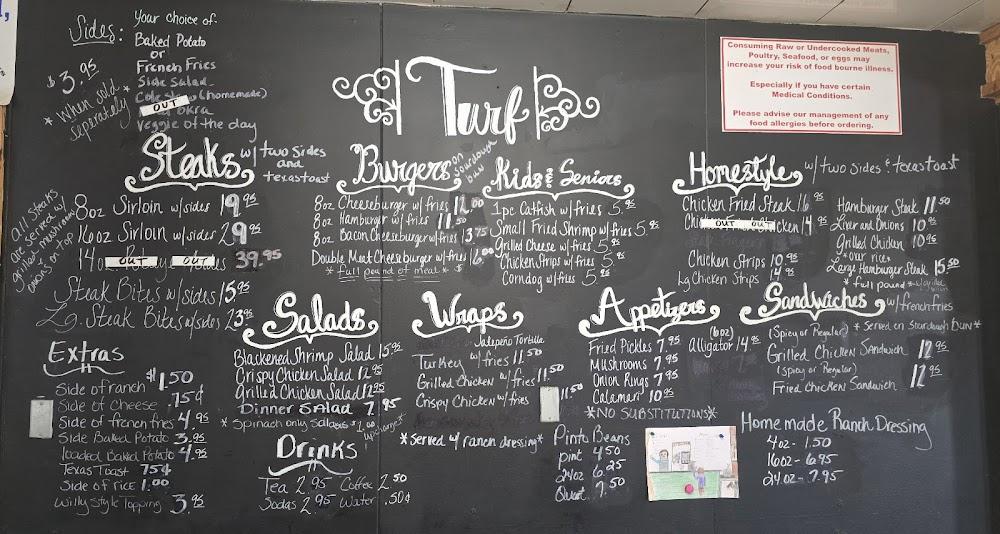 Sides:
Your choice of:
Baked Potato
or
French Fries
Side Salad
Cole slaw (homemade)
OUT okra
Veggie of the day
$3.95
*When sold
seperately*
Turf
Consuming Raw or Undercooked Meats,
Poultry, Seafood, or eggs may
increase your risk of food bourne illness.
Especially if you have certain
Medical Conditions.
Please advise our management of any
food allergies before ordering.
Steaks w/ two sides
and
texas toast
all steaks
are served w/
grilled mushrooms
onions on top
8oz Sirloin w/sides 19.95
16oz Sirloin w/sides 29.95
14oz OUT OUT 39.95
Steak Bites w/sides 15.95
Lg. Steak Bites w/sides 23.95
Burgers on sourdough
bun
8oz Cheeseburger w/fries 12.00
8oz Hamburger w/fries 11.50
8oz Bacon Cheeseburger w/fries 13.75
Double Meat Cheeseburger w/fries 16.00
*Full pound of meat*
Kids & Seniors
1pc Catfish w/fries 5.95
Small Fried Shrimp w/fries 5.95
Grilled Cheese w/fries 5.95
Chicken Strips w/fries 5.95
Corndog w/fries 5.95
Homestyle w/ two sides & texas toast
Chicken Fried Steak 16.95
OUT OUT 14.95
Chicken Strips 10.95
Lg Chicken Strips 14.95
Hamburger Steak 11.50
Liver and Onions 10.95
Grilled Chicken 10.95
*our rice*
Large Hamburger Steak 15.50
*full pound*
Extras
Side of ranch $1.50
Side of Cheese .75¢
Side of french fries 4.95
Side Baked Potato 3.95
loaded Baked Potato 4.95
Texas Toast 75¢
Side of rice 1.00
Willy Style Topping 3.95
Salads
Blackened Shrimp Salad 15.95
Crispy Chicken Salad 12.95
Grilled Chicken Salad 12.95
Dinner Salad 7.95
*Spinach only Salads $1.00
upcharge*
Drinks
Tea 2.95 Coffee 2.50
Sodas 2.95 Water .50¢
Wraps
Jalapeño Tortilla
Turkey w/fries 11.50
Grilled Chicken w/fries 11.50
Crispy Chicken w/fries 11.50
*Served w/ ranch dressing*
Appetizers
Fried Pickles 7.95
Mushrooms 7.95
Onion Rings 7.95
Calamari 10.95
(6oz)
Alligator 14.95
*NO SUBSTITUTIONS*
Pinto Beans
pint 4.50
24oz 6.25
Quart 7.50
Sandwiches
w/french fries
(Spicy or Regular) *Served on Sourdough Bun*
Grilled Chicken Sandwich 12.95
(Spicy or Regular)
Fried Chicken Sandwich 12.95
Homemade Ranch Dressing
4oz - 1.50
16oz - 6.95
24oz - 7.95